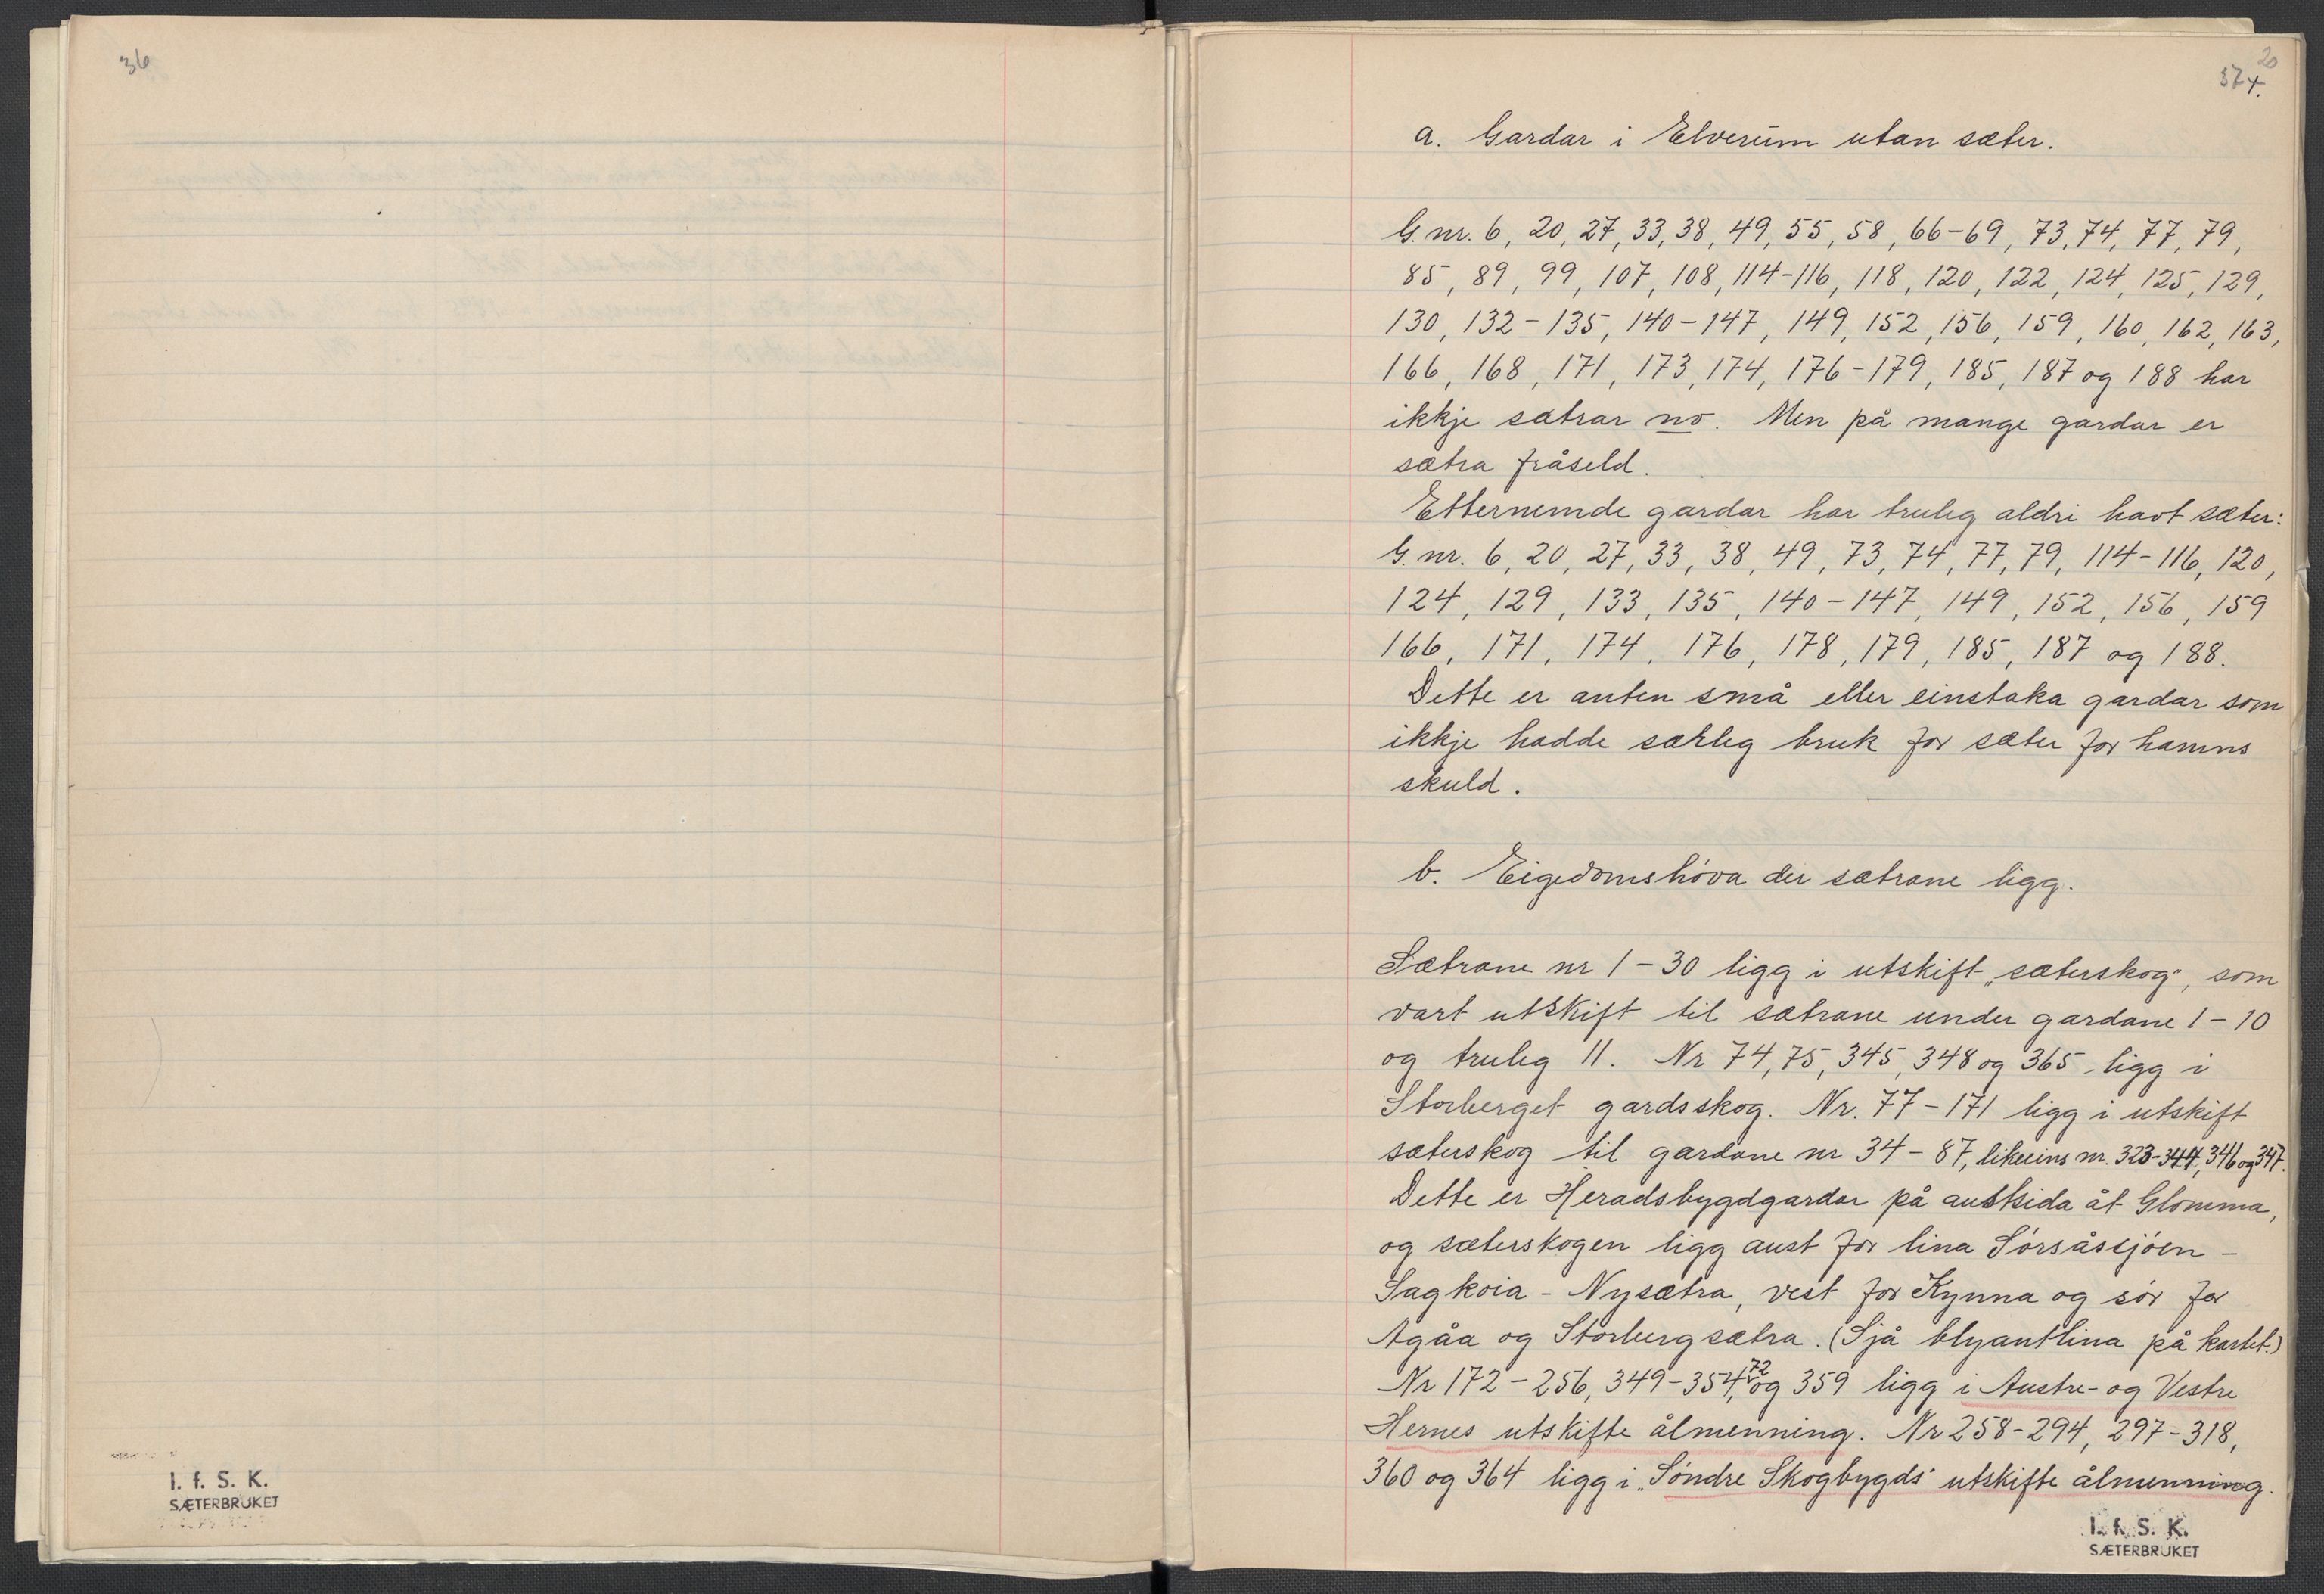 36
I. f. S. K.
SÆTERBRUKET
20
37 4.
a. Gardar i Elverum utan sæter.
G. nr. 6, 20, 27, 33, 38, 49, 55, 58, 66-69, 73, 74, 77, 79,
85, 89, 99, 107, 108, 114-116, 118, 120, 122, 124, 125, 129,
130, 132-135, 140-147, 149, 152, 156, 159, 160, 162, 163,
166, 168, 171, 173, 174, 176-179, 185, 187 og 188 har
ikkje sætrar no. Men på mange gardar er
sætra fråseld.
Etternemde gardar har truleg aldri havt sæter:
G. nr. 6, 20, 27, 33, 38, 49, 73, 74, 77, 79, 114-116, 120,
124, 129, 133, 135, 140-147, 149, 152, 156, 159
166, 171, 174, 176, 178, 179, 185, 187 og 188.
Dette er anten små eller einstaka gardar som
ikkje hadde særleg bruk for sæter for hamns
skuld.
b. Eigedomshøva der sætrane ligg.
Sætrane nr 1-30 ligg i utskift „sæterskog“, som
vart utskift til sætrane under gardane 1-10
og truleg 11. Nr 74, 75, 345, 348 og 365 ligg i
Storberget gardsskog. Nr. 77-171 ligg i utskift
sæterskog til gardane nr 34-87, likeeins nr. 323-344, 346 og 347.
Dette er Heradsbygdgardar på austsida åt Glomma,
og sæterskogen ligg aust for lina Sørsåssjøen -
Sagkoia - Nysætra, vest for Kynna og sør for
Agåa og Storbergsætra. (Sjå blyantlina på kartet.)
Nr 172-256, 349-354, 72 og 359 ligg i Austre- og Vestre
Hernes utskifte ålmenning. Nr 258-294, 297-318,
360 og 364 ligg i „Søndre Skogbygds“ utskifte ålmenning.
I. f. S. K.
SÆTERBRUKET